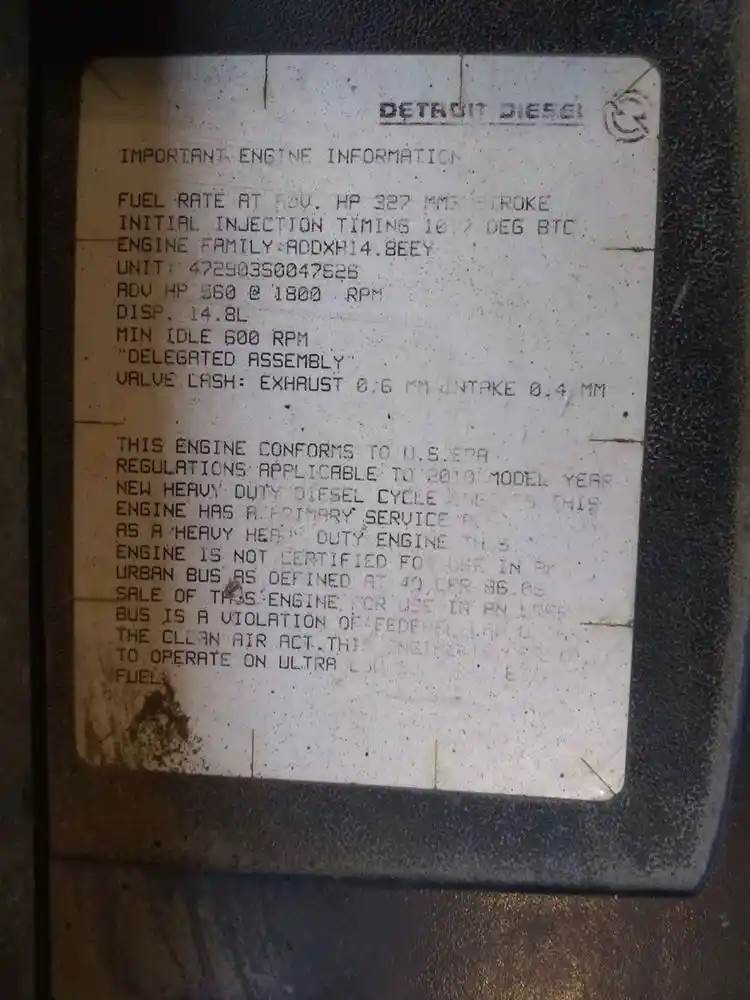 DETROIT DIESEL
IMPORTANT ENGINE INFORMATION
FUEL RATE AT ADV. HP 327 MM3 STROKE
INITIAL INJECTION TIMING 10.7 DEG BTC
ENGINE FAMILY:ADDXH14.8EEY
UNIT: 472903S0047626
ADV HP 560 @ 1800 RPM
DISP. 14.8L
MIN IDLE 600 RPM
"DELEGATED ASSEMBLY"
VALVE LASH: EXHAUST 0.6 MM INTAKE 0.4 MM
THIS ENGINE CONFORMS TO U.S.EPA
REGULATIONS APPLICABLE TO 2010 MODEL YEAR
NEW HEAVY DUTY DIESEL CYCLE THIS
ENGINE HAS A PRIMARY SERVICE
AS A HEAVY HEAVY DUTY ENGINE THIS
ENGINE IS NOT CERTIFIED FOR USE IN AN
URBAN BUS AS DEFINED AT 40 CFR 86.
SALE OF THIS ENGINE FOR USE IN AN URBAN
BUS IS A VIOLATION OF FEDERAL LAW
THE CLEAN AIR ACT.THIS ENGINE
TO OPERATE ON ULTRA
FUEL